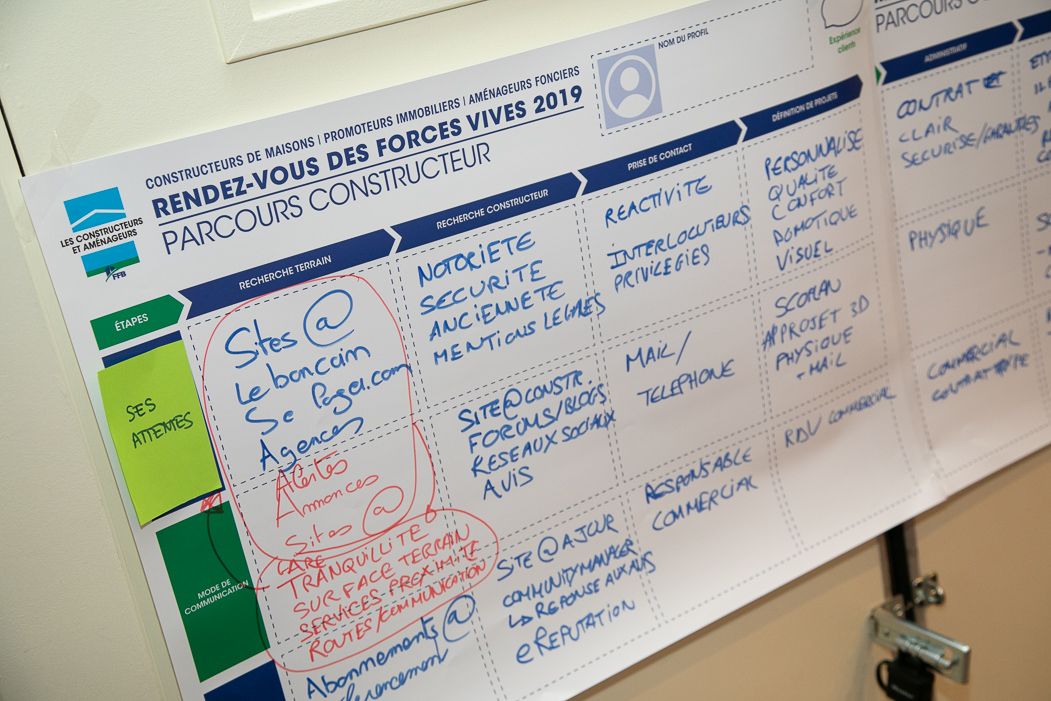 CONSTRUCTEURS DE MAISONS | PROMOTEURS IMMOBILIERS | AMÉNAGEURS FONCIERS
RENDEZ-VOUS DES FORCES VIVES 2019
PARCOURS CONSTRUCTEUR
LES CONSTRUCTEURS
ET AMÉNAGEURS
FFB
NOM DU PROFIL
Expérience
clients
PARCOURS
ÉTAPES
RECHERCHE TERRAIN
RECHERCHE CONSTRUCTEUR
PRISE DE CONTACT
DÉFINITION DE PROJETS
ADMINISTRATIF
SES
ATTENTES
Sites @
Leboncoin
Se loger.com
Agences
NOTORIETE
SECURITE
ANCIENNETE
MENTIONS LEGALES
REACTIVITE
INTERLOCUTEURS
PRIVILEGIES
PERSONNALISE
QUALITE
CONFORT
DOMOTIQUE
VISUEL
CONTRAT ET
CLAIR
SECURISE/GARANTIES
MODE DE
COMMUNICATION
Alertes
Annonces
Sites @
SITE@CONSTR.
FORUMS/BLOGS
RESEAUX SOCIAUX
AVIS
MAIL/
TELEPHONE
APPROJET 3D
PHYSIQUE
+ MAIL
PHYSIQUE
TRANQUILLITE
SURFACE TERRAIN
SERVICES PROXIMITE
ROUTES/COMMUNICATION
Abonnements @
SITE @ A JOUR
COMMUNITY MANAGER
↳ REPONSE AUX AVIS
eREPUTATION
RESPONSABLE
COMMERCIAL
RDV COMMERCIAL
COMMERCIAL
CONTRAT TYPE